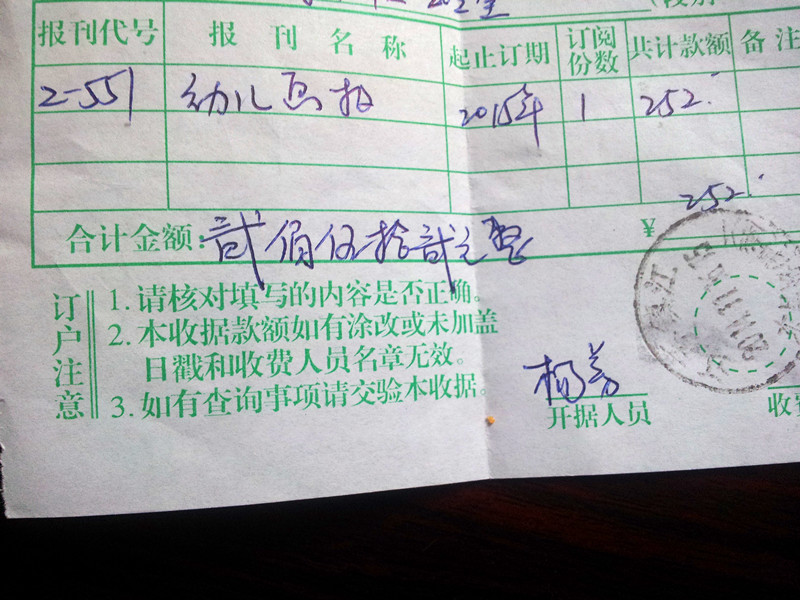 报刊代号 报刊名称 起止订期 订阅份数 共计款额 备注
2-551 幼儿画报 2015年 1 252.
¥ 252.
合计金额: 贰佰伍拾贰元整
订户注意
1. 请核对填写的内容是否正确。
2. 本收据款额如有涂改或未加盖
日戳和收费人员名章无效。
3. 如有查询事项请交验本收据。
开据人员 收